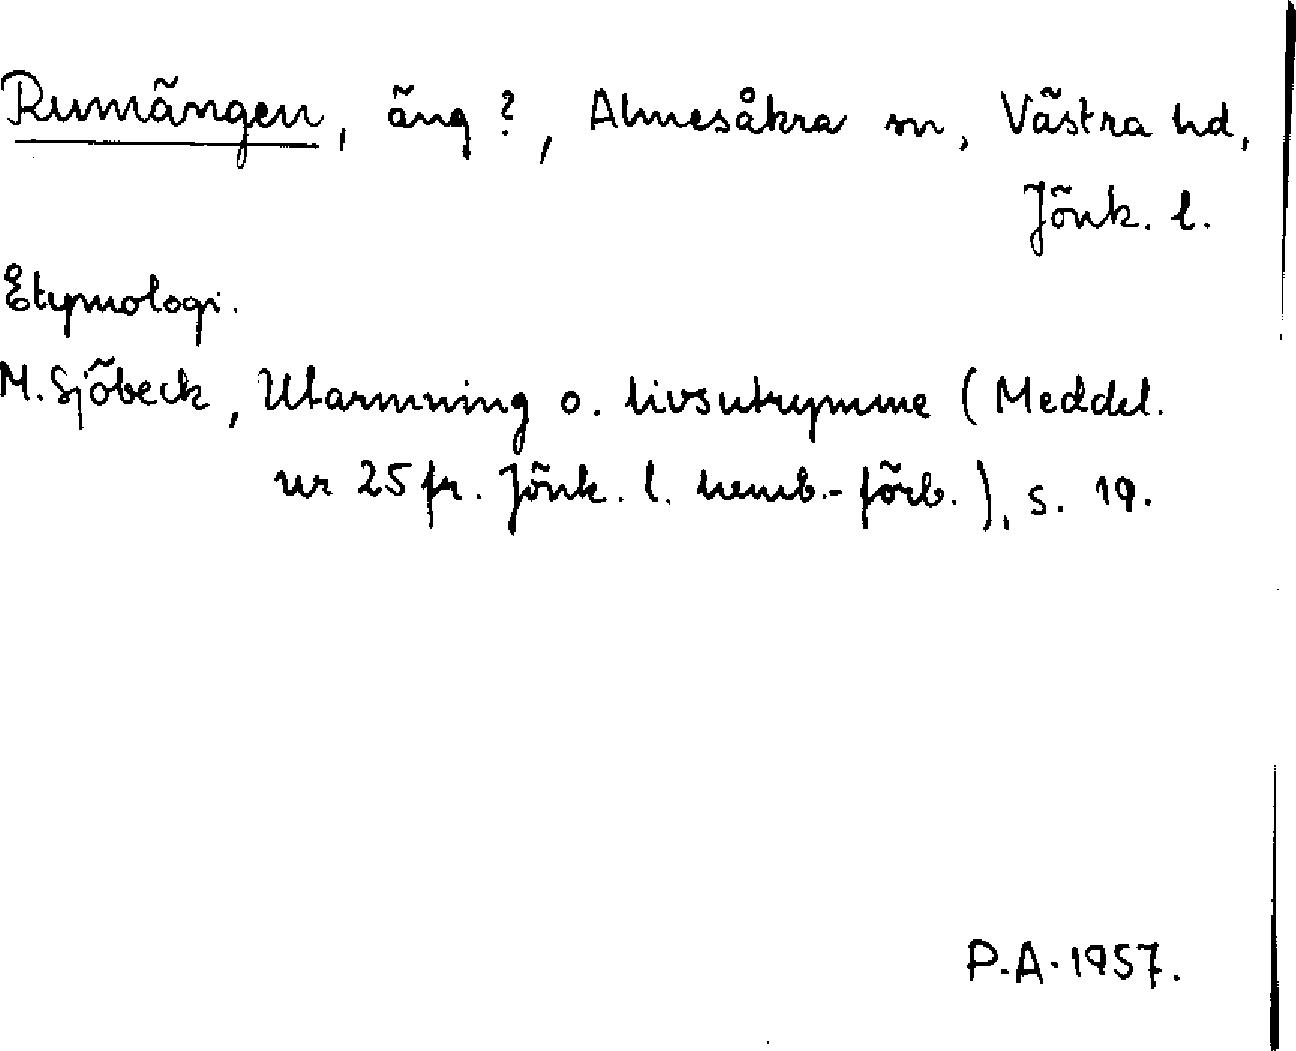 Rumängen, äng?, Almesåkra sn, Västra hd,
Jönk. l.
Etymologi.
M. Sjöbeck, Utarmning o. livsutrymme (Meddel.
nr 25 fr. Jönk. l. hemb.-förb.), s. 19.
P.A. 1957.